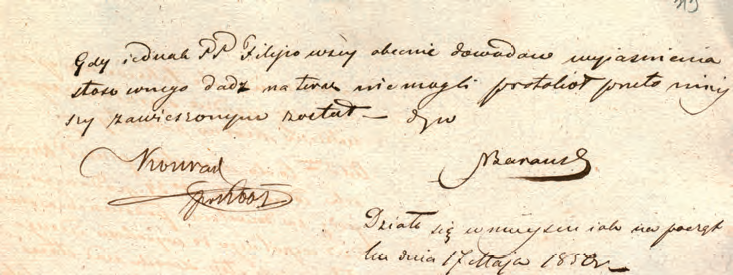 Gdy iednak PP Filipowscy obecnie dowodow wyiasnienia
stosownego dadz na teraz nie mogli protokoł przeto niniey
szy zawieszonym został —
Konrad
Działo się w mieyscu iak na począt
ku dnia 17 Maja